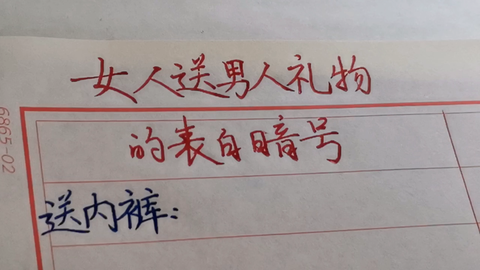 女人送男人礼物
的表白暗号
送内裤：
6865-02